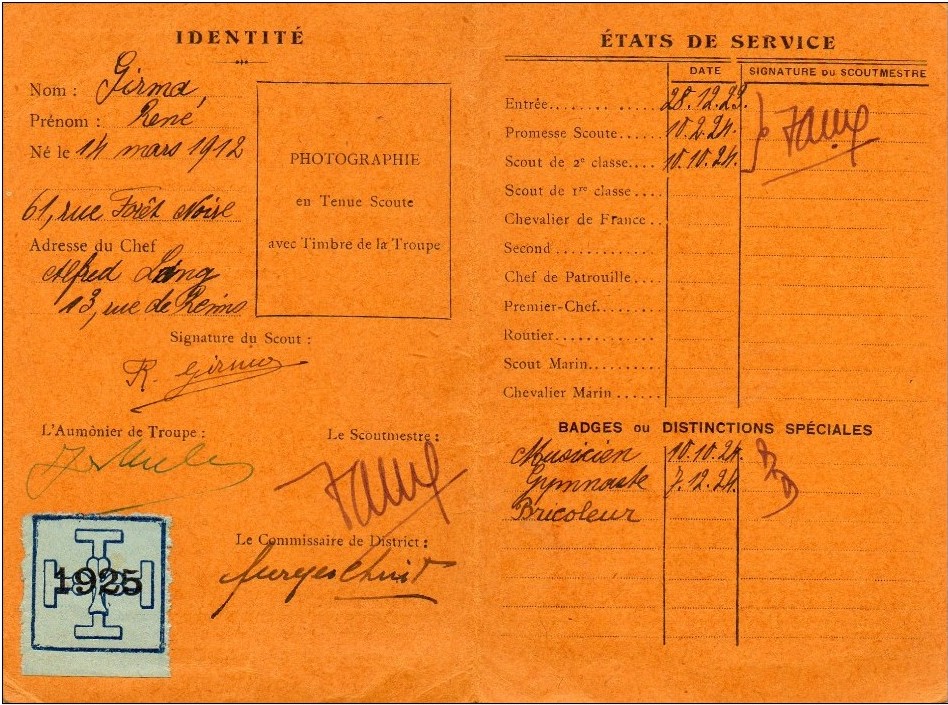 IDENTITÉ
Nom : Girma,
Prénom : René
Né le 14 mars 1912
61, rue Forêt Noire
Adresse du Chef
Alfred Lang
13, rue de Reims
PHOTOGRAPHIE
en Tenue Scoute
avec Timbre de la Troupe
Signature du Scout :
R. Girma
L'Aumônier de Troupe :
Le Scoutmestre :
Le Commissaire de District :
1925
ÉTATS DE SERVICE
DATE SIGNATURE DU SCOUTMESTRE
Entrée........ ........ 28.12.23.
Promesse Scoute...... 10.2.24.
Scout de 2e classe.... 10.10.24.
Scout de 1re classe ....
Chevalier de France ..
Second ............
Chef de Patrouille....
Premier-Chef.........
Routier............
Scout Marin..........
Chevalier Marin ......
BADGES OU DISTINCTIONS SPÉCIALES
Musicien 10.10.24.
Gymnaste 7.12.24.
Bricoleur